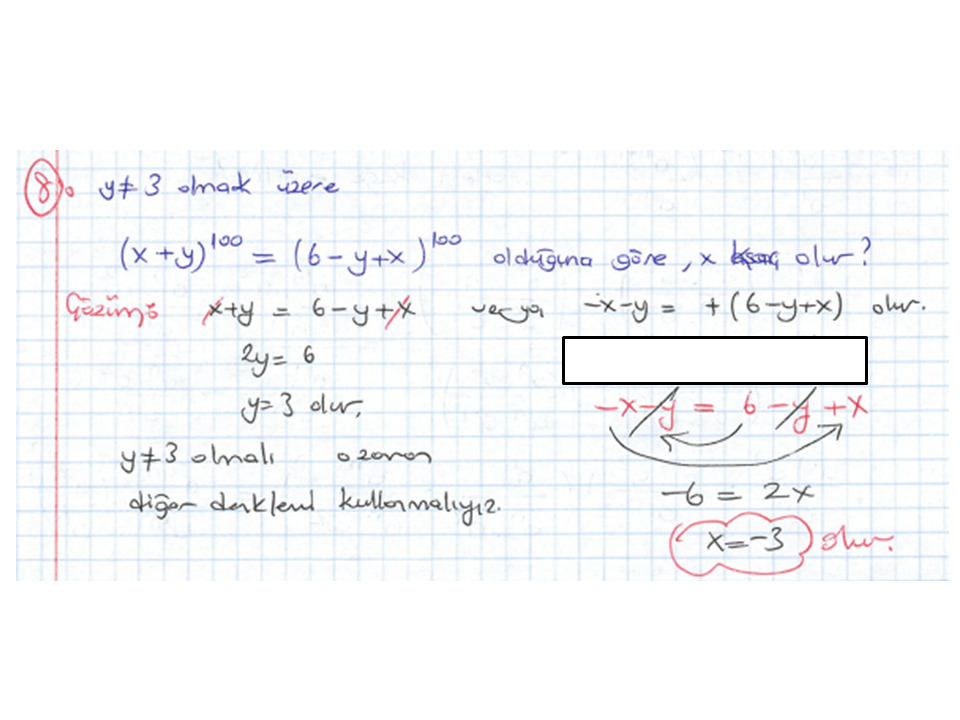 8. y≠3 olmak üzere
(x+y)^100 = (6-y+x)^100 olduğuna göre, x kaç olur?
Çözüm: x+y = 6-y+x veya -x-y = +(6-y+x) olur.
2y = 6
y=3 olur,
-x-y = 6-y+x
y≠3 olmalı o zaman
-6 = 2x
diğer denklemi kullanmalıyız.
x=-3 olur.